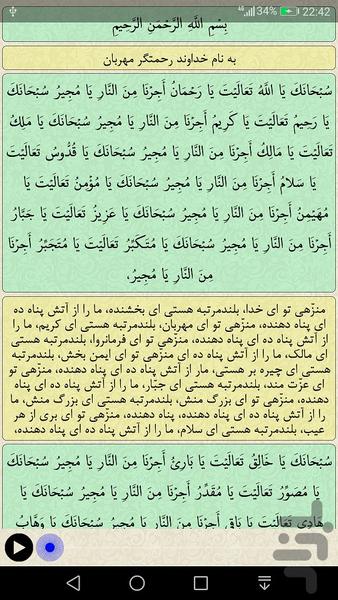 4G 34% 22:42
بِسْمِ اللَّهِ الرَّحْمَنِ الرَّحِيمِ
به نام خداوند رحمتگر مهربان
سُبْحَانَكَ يَا اللَّهُ تَعَالَيْتَ يَا رَحْمَانُ أَجِرْنَا مِنَ النَّارِ يَا مُجِيرُ سُبْحَانَكَ
يَا رَحِيمُ تَعَالَيْتَ يَا كَرِيمُ أَجِرْنَا مِنَ النَّارِ يَا مُجِيرُ سُبْحَانَكَ يَا مَلِكُ
تَعَالَيْتَ يَا مَالِكُ أَجِرْنَا مِنَ النَّارِ يَا مُجِيرُ سُبْحَانَكَ يَا قُدُّوسُ تَعَالَيْتَ
يَا سَلامُ أَجِرْنَا مِنَ النَّارِ يَا مُجِيرُ سُبْحَانَكَ يَا مُؤْمِنُ تَعَالَيْتَ يَا
مُهَيْمِنُ أَجِرْنَا مِنَ النَّارِ يَا مُجِيرُ سُبْحَانَكَ يَا عَزِيزُ تَعَالَيْتَ يَا جَبَّارُ
أَجِرْنَا مِنَ النَّارِ يَا مُجِيرُ سُبْحَانَكَ يَا مُتَكَبِّرُ تَعَالَيْتَ يَا مُتَجَبِّرُ أَجِرْنَا
مِنَ النَّارِ يَا مُجِيرُ،
منزّهی تو ای خدا، بلندمرتبه هستی ای بخشنده، ما را از آتش پناه ده
ای پناه دهنده، منزّهی تو ای مهربان، بلندمرتبه هستی ای کریم، ما را
از آتش پناه ده ای پناه دهنده، منزّهی تو ای فرمانروا، بلندمرتبه هستی
ای مالک، ما را از آتش پناه ده ای پناه دهنده، منزّهی تو ای ایمن بخش، بلندمرتبه
هستی ای چیره بر هستی، مار از آتش پناه ده ای پناه دهنده، منزّهی تو
ای عزّت مند، بلندمرتبه هستی ای جبّار، ما را از آتش پناه ده ای پناه
دهنده، منزّهی تو ای بزرگ منش، بلندمرتبه هستی ای بزرگ منش، ما
را از آتش پناه ده ای پناه دهنده، پناه دهنده، منزّهی تو ای بری از هر
عیب، بلندمرتبه هستی ای سلام، ما را از آتش پناه ده ای پناه دهنده،
سُبْحَانَكَ يَا خَالِقُ تَعَالَيْتَ يَا بَارِئُ أَجِرْنَا مِنَ النَّارِ يَا مُجِيرُ سُبْحَانَكَ
يَا مُصَوِّرُ تَعَالَيْتَ يَا مُقَدِّرُ أَجِرْنَا مِنَ النَّارِ يَا مُجِيرُ سُبْحَانَكَ يَا
هَادِي تَعَالَيْتَ يَا بَاقِي أَجِرْنَا مِنَ النَّارِ يَا مُجِيرُ سُبْحَانَكَ يَا وَهَّابُ